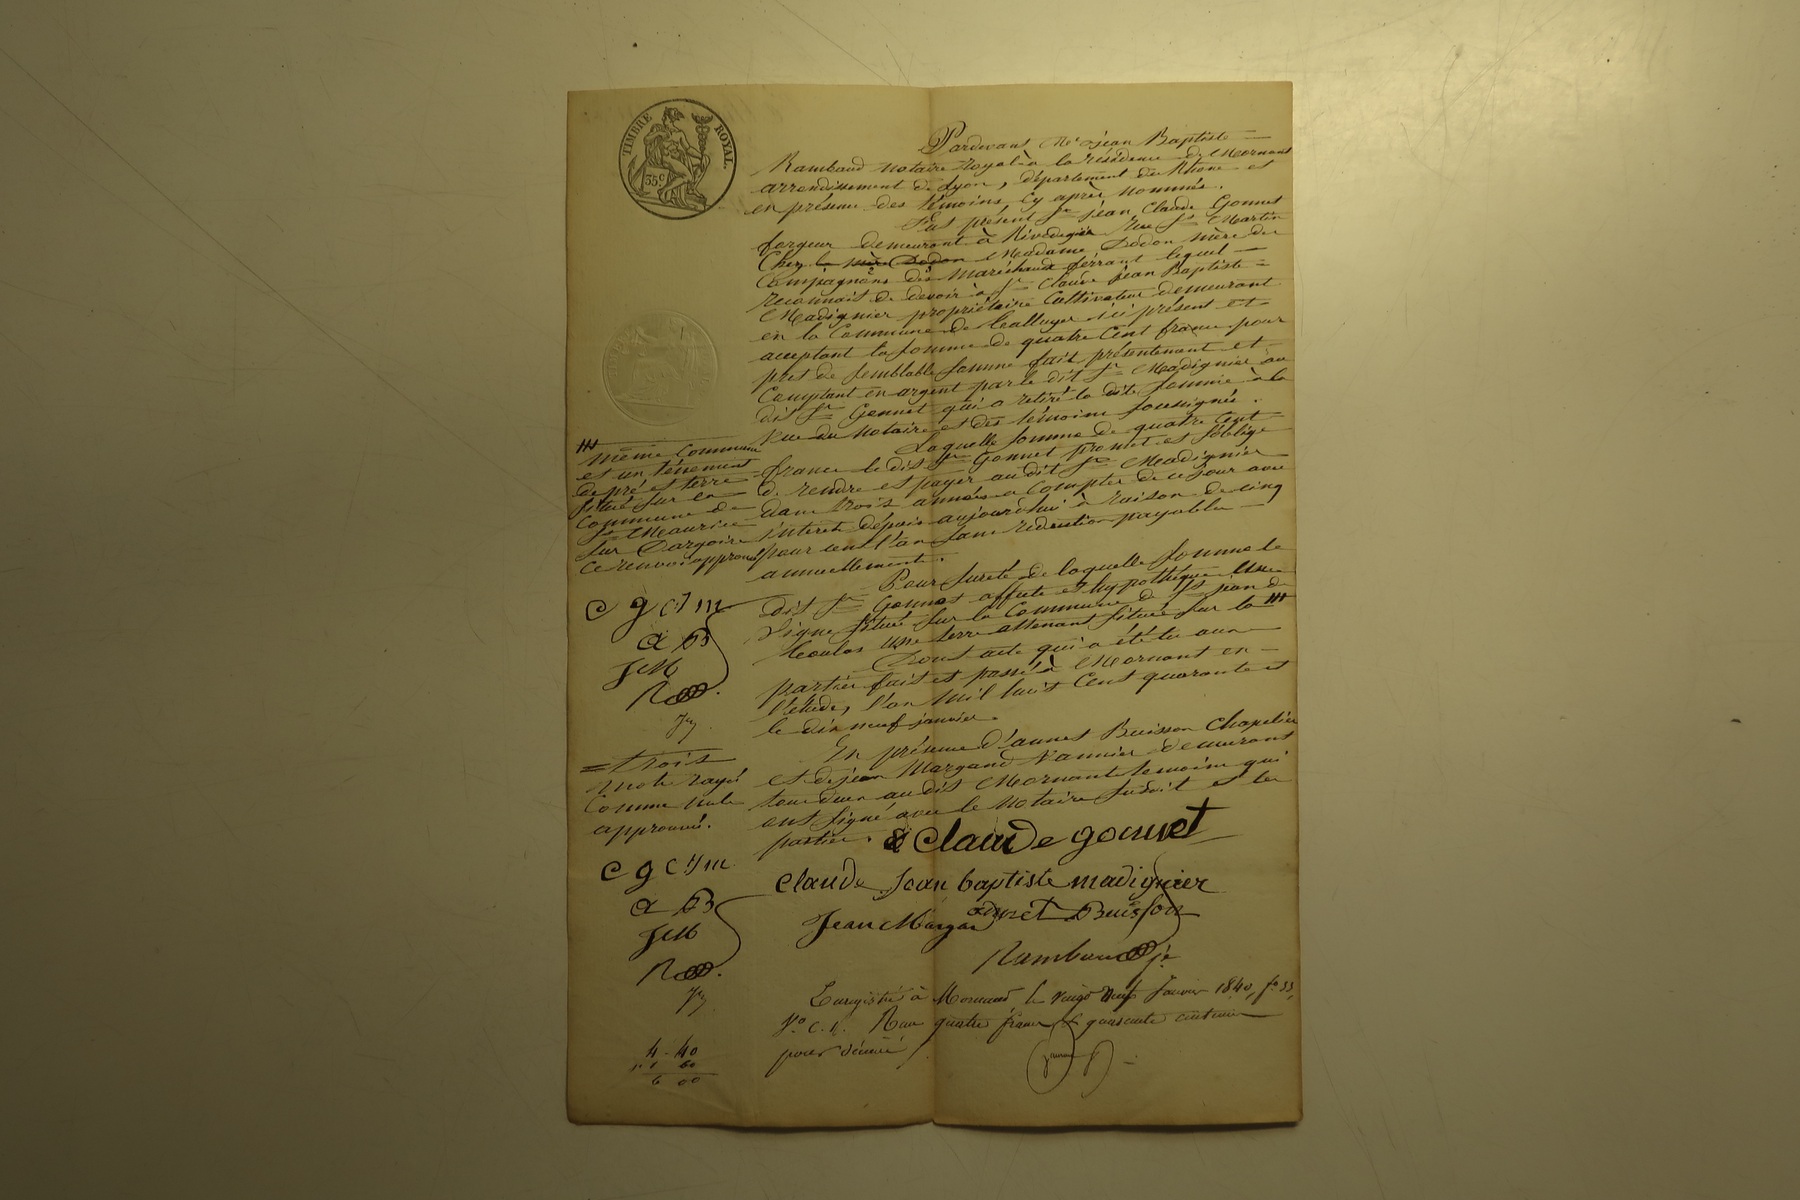 TIMBRE ROYAL.
35 c
Pardevant Me jean Baptiste
Rambaud notaire Royal à la résidence de Mornant
arrondissement de Lyon, département du Rhône et
en présence des témoins cy après nommés.
Fut présent Sr jean Claude Gonnet
forgeur demeurant à Rivedegier Rue St Martin
Chez la mère Dodon Madame Dodon mère des
Compagnons des Maréchaux ferrant lequel
reconnait de devoir à Sr Claude jean Baptiste
Madignier propriétaire Cultivateur demeurant
en la Commune de ici présent et
acceptant la somme de quatre Cent francs pour
prêt de semblable somme fait présentement et
Comptant en argent par le dit Sr Madignier au
dit Sr Gonnet qui a retiré la dite somme à la
vue du Notaire et des témoins soussignés.
Laquelle somme de quatre Cent
francs le dit Sr Gonnet promet et s'oblige
de rendre et payer au dit Sr Madignier
dans trois années a Compter de ce jour avec
interets dépuis aujourd'hui à raison de cinq
pour cent l'an sans rétention payable
annuellement.
Pour sureté de laquelle somme le
dit Sr Gonnet affecte et hypothèque une
vigne située sur la Commune de St jean de
Toulas une terre attenant située sur la
Dont acte qui a été lu aux
parties fait et passé à Mornant en
l'etude, l'an mil huit Cent quarante et
le dix neuf janvier.
En présence d'annet Buisson Chapelier
et de jean Margand Vannier demeurant
tous deux au dit Mornant temoins qui
ont signé avec le Notaire susdit et les
parties.
même Commune
et un ténement
de pré et terre
situé sur la
Commune de
St Maurice
sur Dargoire
ce renvoi approuvé
c g c j m
a B
J M
R
= trois
mots rayés
Comme nuls
approuvés.
c g c j m
a B
J M
R
Claude gonnet
Claude Jean baptiste madignier
annet Buisson
Jean Margan
Rambaud
Enregistré à Mornant le vingt neuf Janvier 1840, fo 33,
Vo C. 1. Reçu quatre francs & quarante centimes
pour décime
4 - 40
1 60
6 00